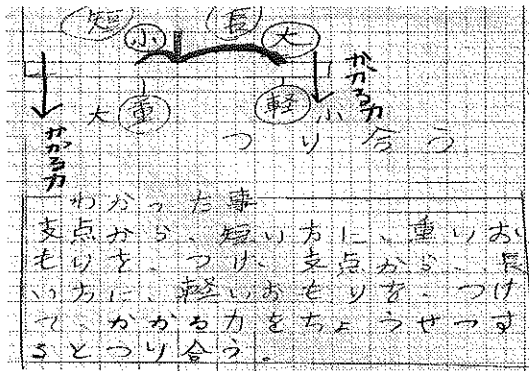 短 長
小 大
大 重 軽 小
かかる力
かかる力
つり合う
わかった事
支点から、短い方に、重いお
もりを、つけ、支点から、長
い方に、軽いおもりを、つけ
て、かかる力をちょうせつす
るとつり合う。